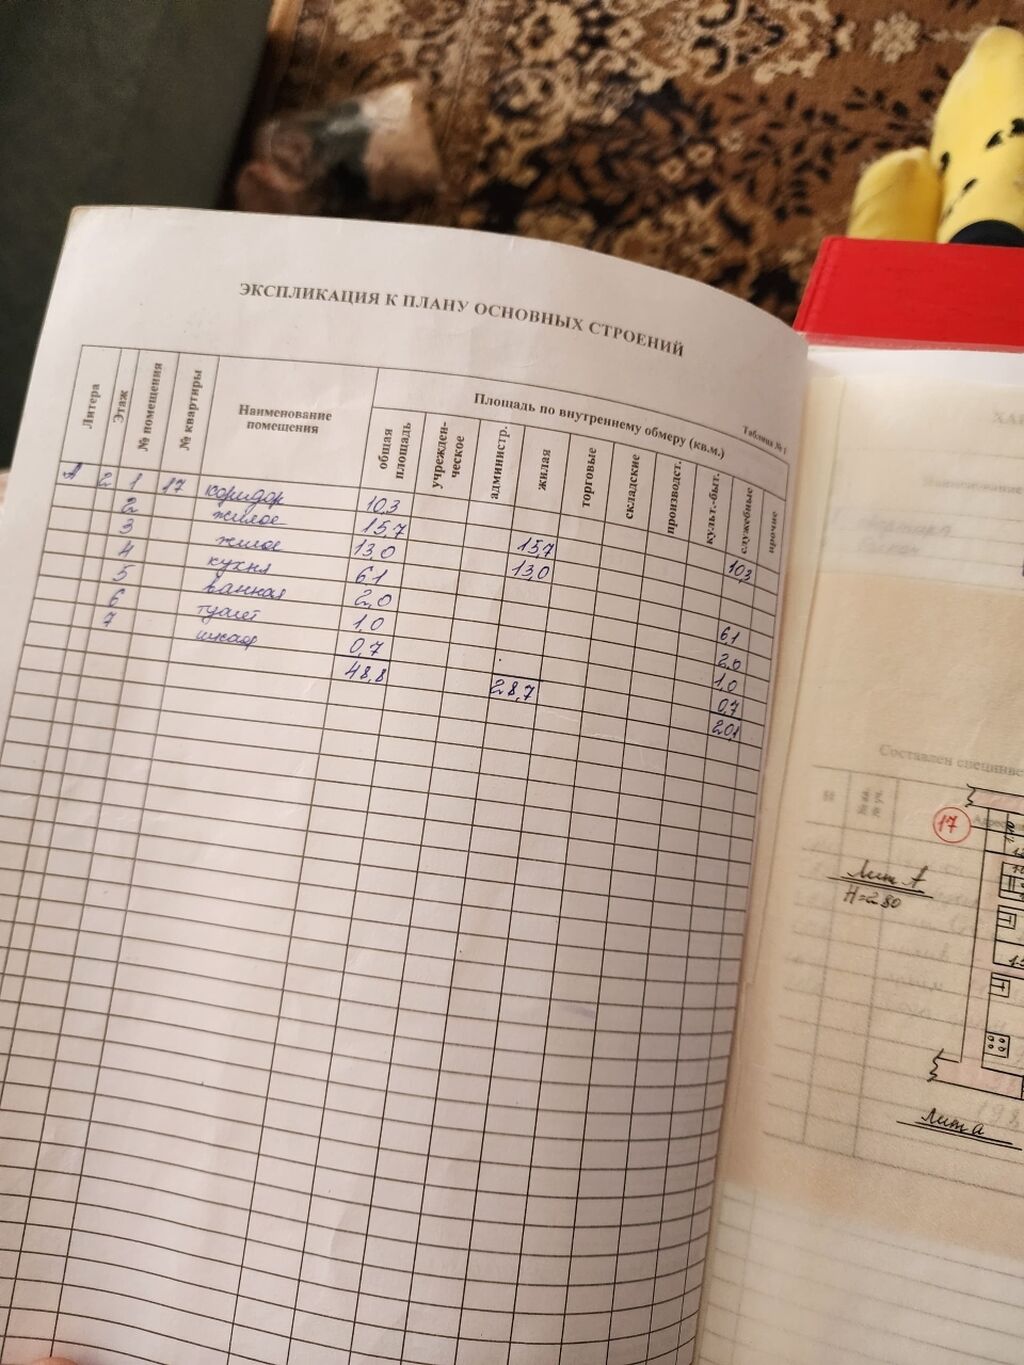 ЭКСПЛИКАЦИЯ К ПЛАНУ ОСНОВНЫХ СТРОЕНИЙ
Таблица №1
Литера Этаж № помещения № квартиры Наименование помещения Площадь по внутреннему обмеру (кв.м.)
общая площадь учрежден-ческое администр. жилая торговые складские производст. культ.-быт. служебные прочие
А 2 1 17 коридор 10,3 10,3
2 жилое 15,7 15,7
3 жилое 13,0 13,0
4 кухня 6,1 6,1
5 ванная 2,0 2,0
6 туалет 1,0 1,0
7 шкаф 0,7 0,7
48,8 28,7 20,1
ХА
Наименование
Составлен
17
Лит А
H=2.80
Лит а